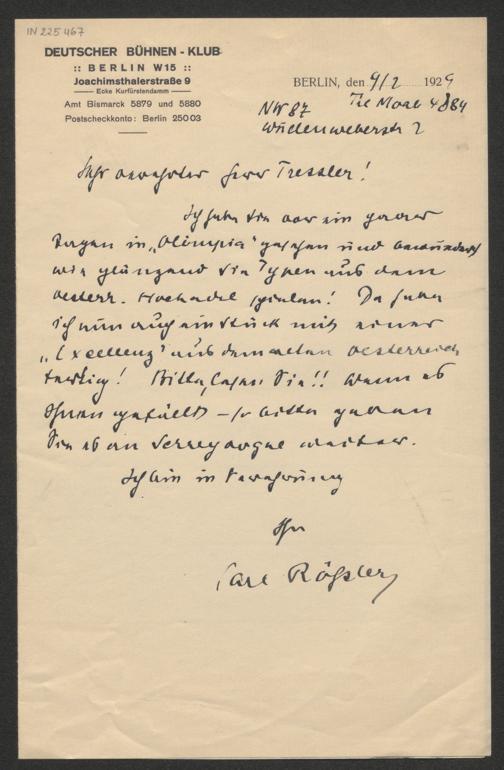 IN 225467
DEUTSCHER BÜHNEN - KLUB
:: BERLIN W 15 ::
Joachimsthalerstraße 9
Ecke Kurfürstendamm
Amt Bismarck 5879 und 5880
Postscheckkonto: Berlin 250 03
BERLIN, den 9/2 1929
NW 87 Tel Moab 4884
Wullenweberstr 2
Sehr verehrter Herr Tressler!
Ich habe Sie vor ein paar
Tagen in „Olimpia" gesehen und bewundert
wie glänzend Sie Typen aus dem
oesterr. Hochadel spielen! Da habe
ich nun auch ein Stück mit einer
„Excellenz" aus dem alten Oesterreich
fertig! Bitte, lesen Sie!! Wenn es
Ihnen gefällt – so bitte geben
Sie es an weiter.
Ich bin in Verehrung
Ihr
Carl Rößler